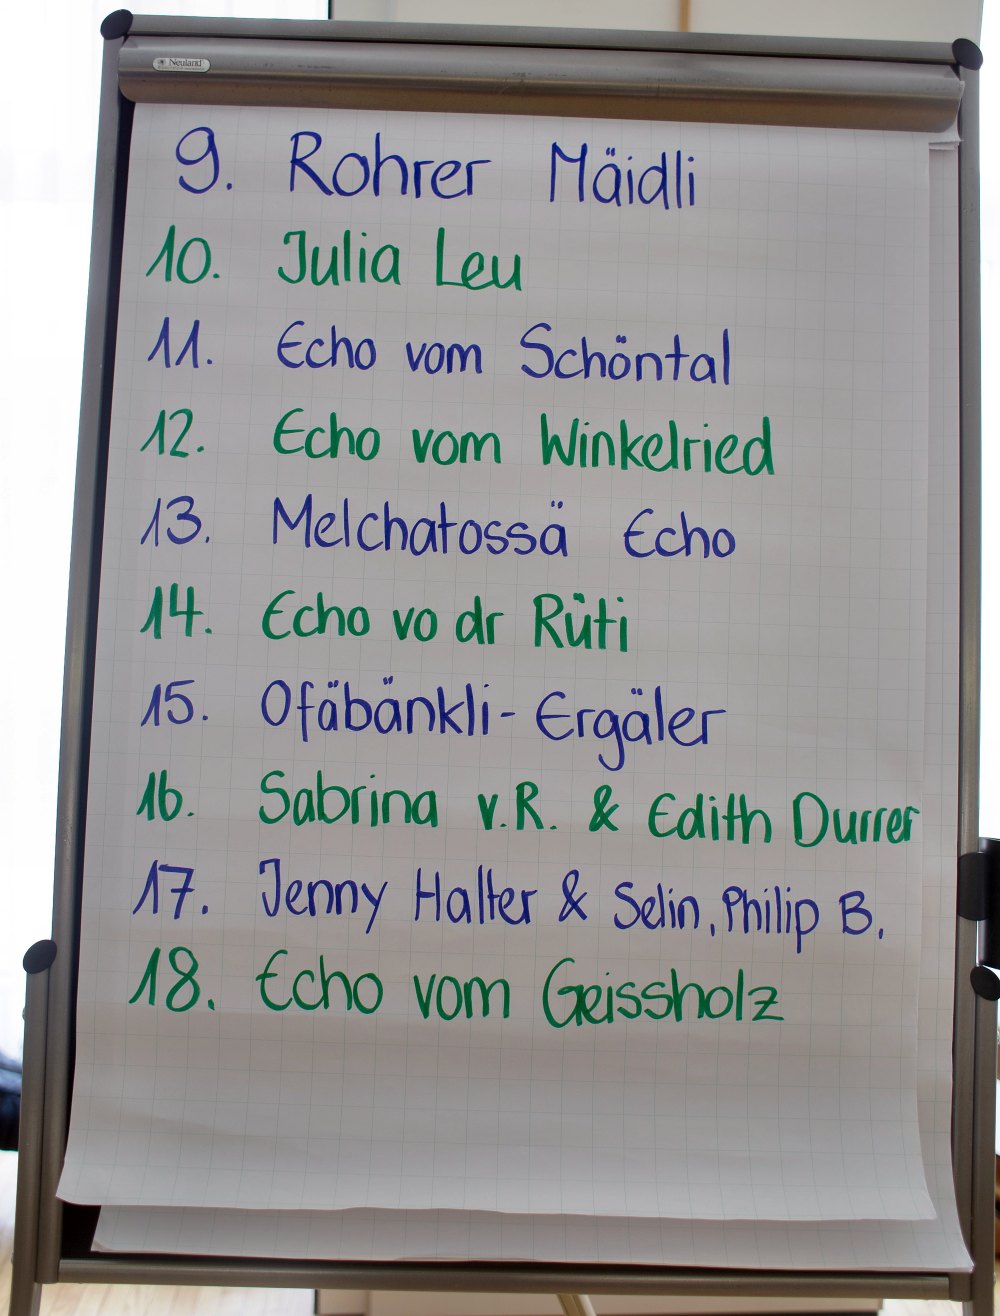 Neuland
9. Rohrer Mäidli
10. Julia Leu
11. Echo vom Schöntal
12. Echo vom Winkelried
13. Melchatossä Echo
14. Echo vo dr Rüti
15. Ofäbänkli-Ergäler
16. Sabrina v.R. & Edith Durrer
17. Jenny Halter & Selin, Philip B.
18. Echo vom Geissholz